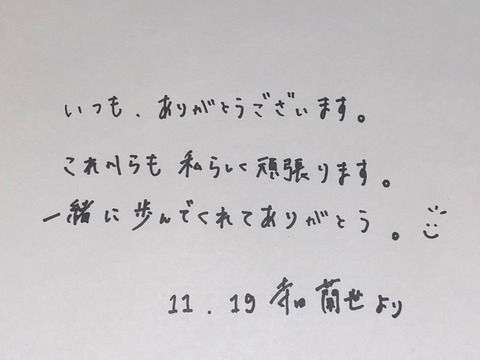 いつも、ありがとうございます。
これからも 私らしく頑張ります。
一緒に歩んでくれてありがとう。
11.19 寺田 蘭世より